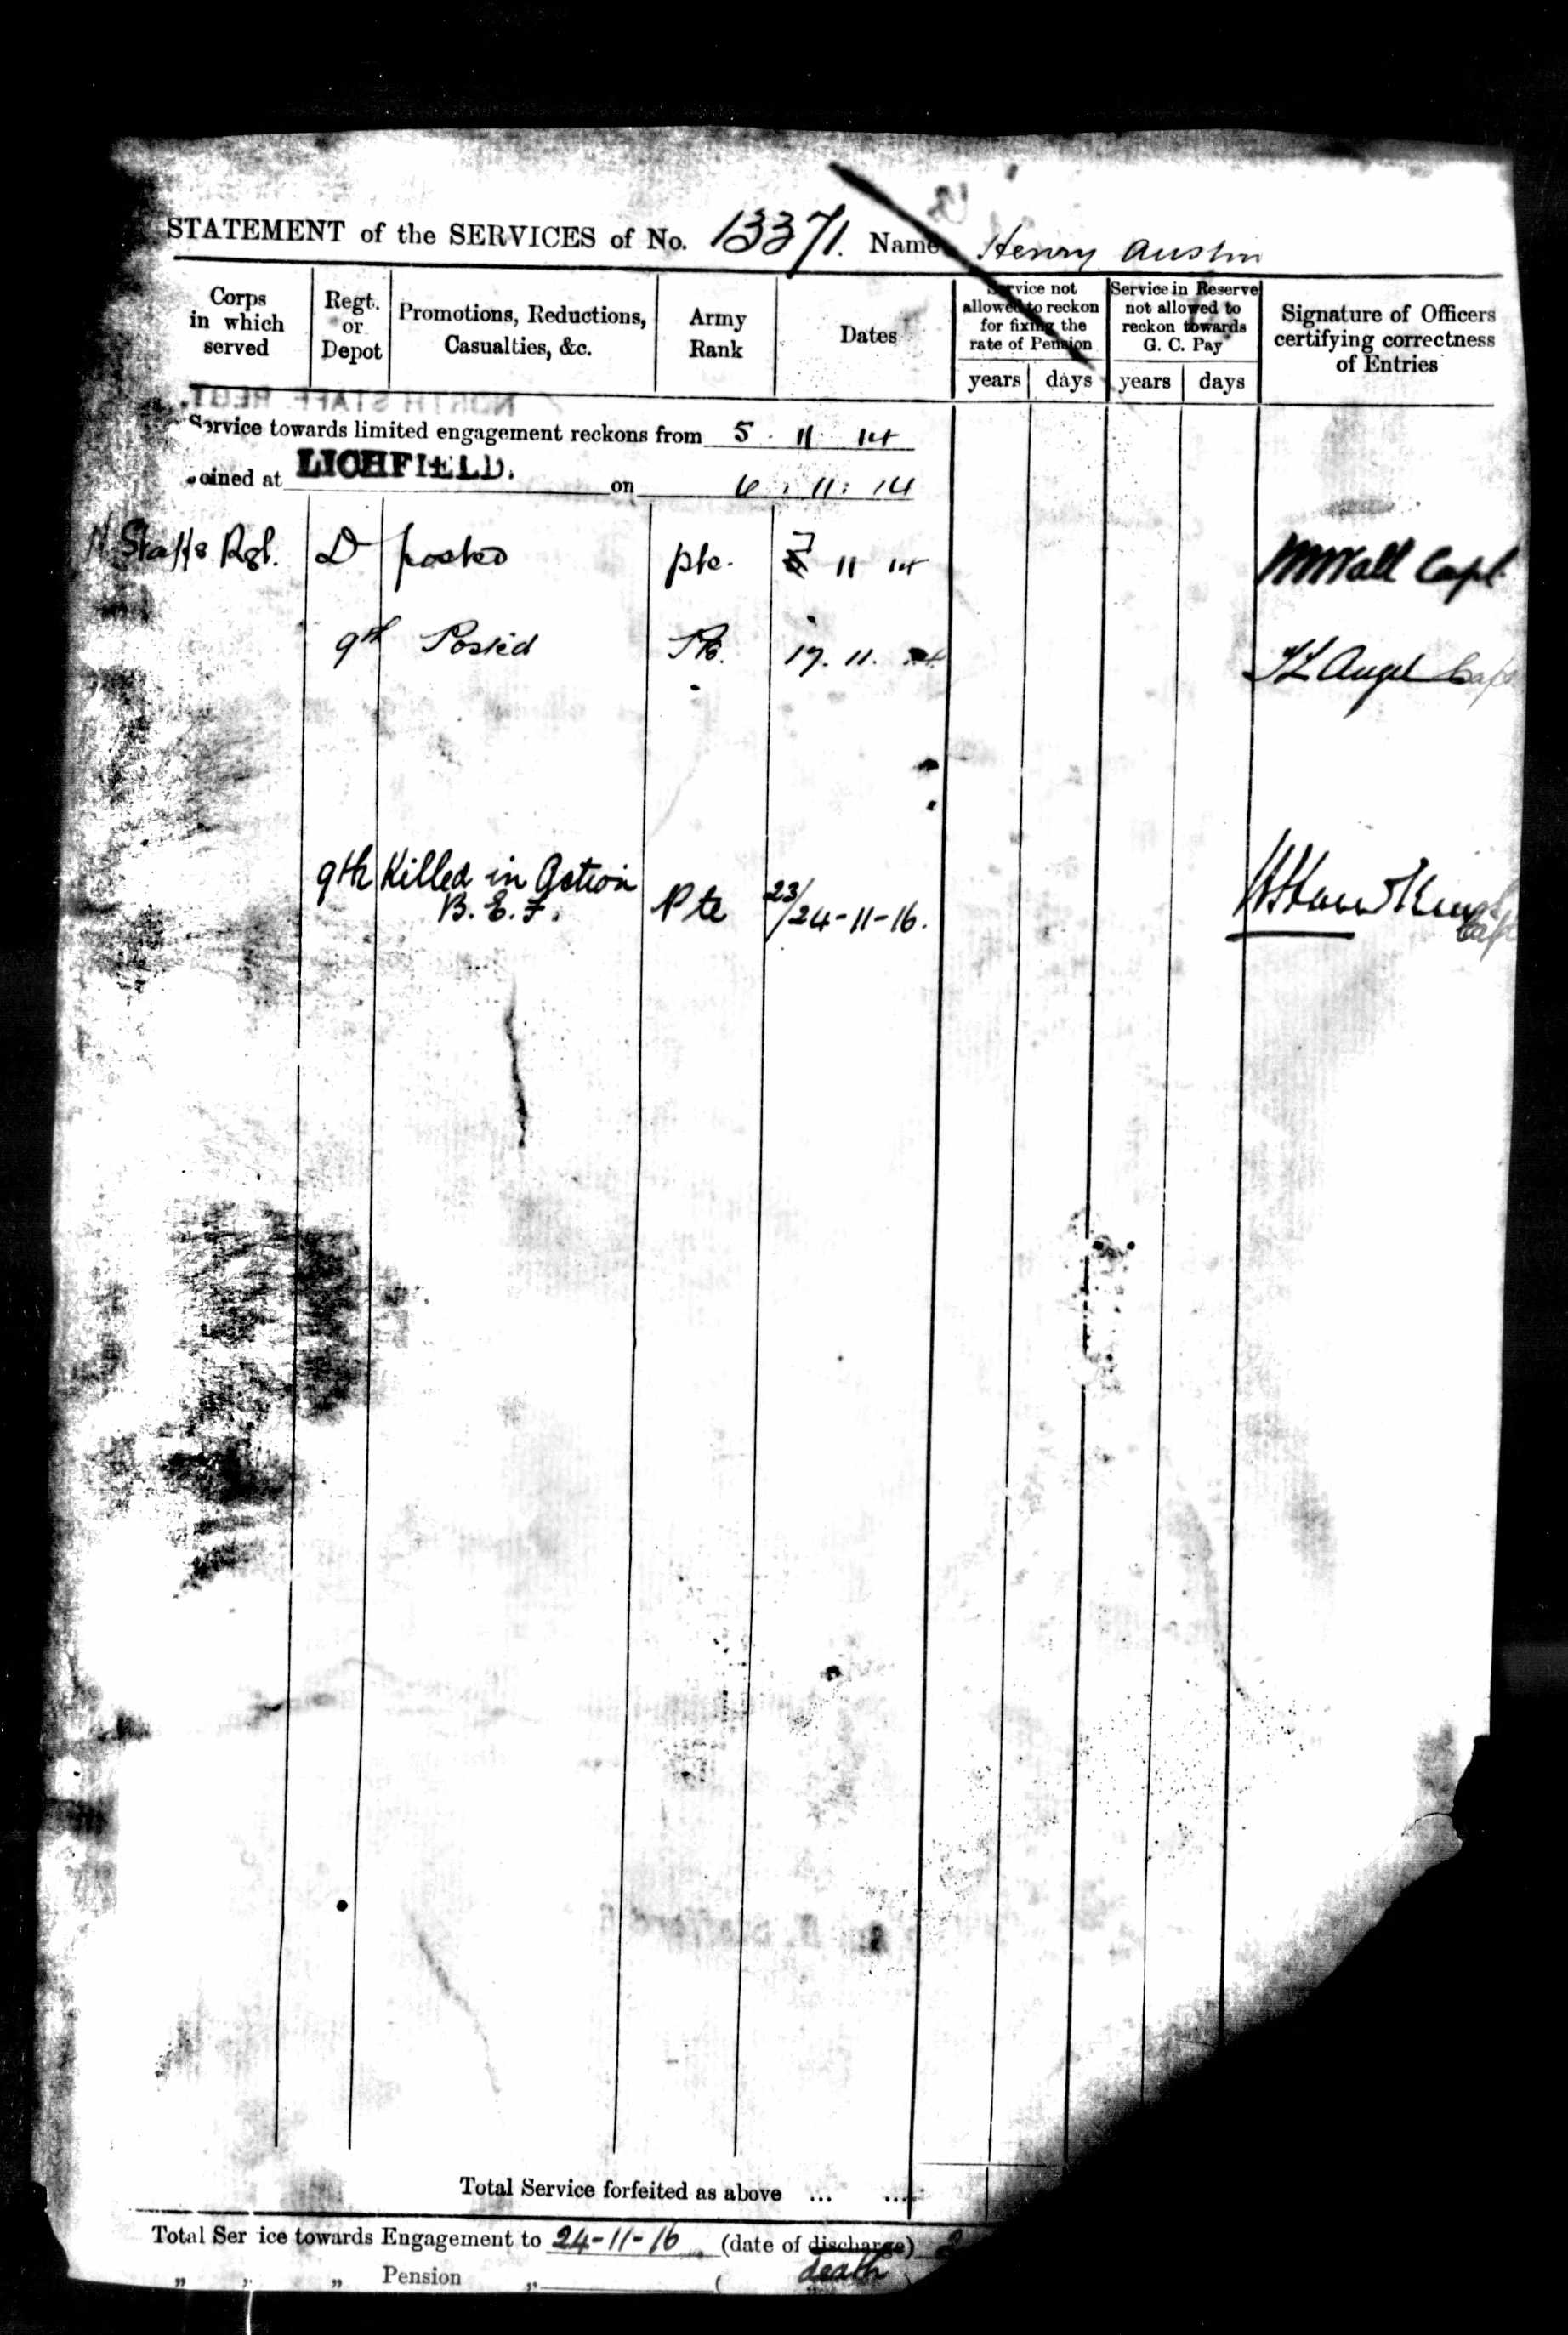 STATEMENT of the SERVICES of No. 13371. Name Henry Austin
Corps in which served
Regt. or Depot
Promotions, Reductions, Casualties, &c.
Army Rank
Dates
Service not allowed to reckon for fixing the rate of Pension
years days
Service in Reserve not allowed to reckon towards G. C. Pay
years days
Signature of Officers certifying correctness of Entries
NORTH STAFF. REGT.
Service towards limited engagement reckons from 5 . 11 14
oined at LICHFIELD. on 6 . 11 : 14
N Staffs Rgt. D posted pte. 7 11 14 Capt.
9th Posted Pte. 17. 11. Angel Capt
9th Killed in Action Pte 23/24-11-16.
B. E. F.
Capt
Total Service forfeited as above ... ...
Total Ser ice towards Engagement to 24-11-16 (date of discharge)
death
„ „ „ Pension „ (